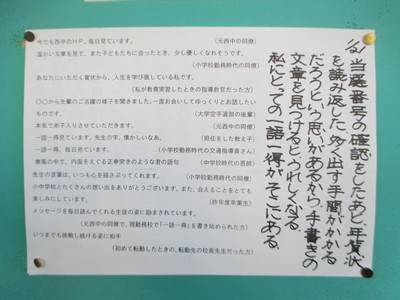 今でも西中のＨＰ、毎日見ています。　（元西中の同僚）
温かい文章を見て、また子どもたちに会ったとき、少し優しくなれそうです。
（小学校勤務時代の同僚）
あなたにいただく賀状から、人生を学び直している私です。
（私が教育実習したときの指導教官だった方）
〇〇から先輩のご活躍の様子を聞きました。一度お会いしてゆっくりとお話したいものです。　（大学空手道部の後輩）
本気で弟子入りさせていただきます。　（元西中の同僚）
一語一得見ています。先生の字、懐かしいなあ。　（担任をした教え子）
一語一得、毎日見ています。　（小学校勤務時代の交通指導員さん）
寒風の中で、内面をえぐる正拳突きのような君の語句　（中学校時代の恩師）
先生の言葉は、いつも心を揺さぶってくれます。　（小学校勤務時代の同僚）
小中学校とたくさんの想い出をありがとうございます。また、会えることをとても楽しみにしています。　（昨年度卒業生）
メッセージを毎日読んでくれる生徒の姿に励まされています。
（元西中の同僚で、現勤務校で「一語一得」を書き始められた方）
いつまでも挑戦し続ける姿に拍手
（初めて転勤したときの、転勤先の校長先生だった方）
当選番号の確認をしたあと、年賀状
を読み返した。外く出す手間がかかる
だろうという思いがあるから、手書きの
文章を見つけるとうれしくなる。
私にとっての一語一得がそこにある。